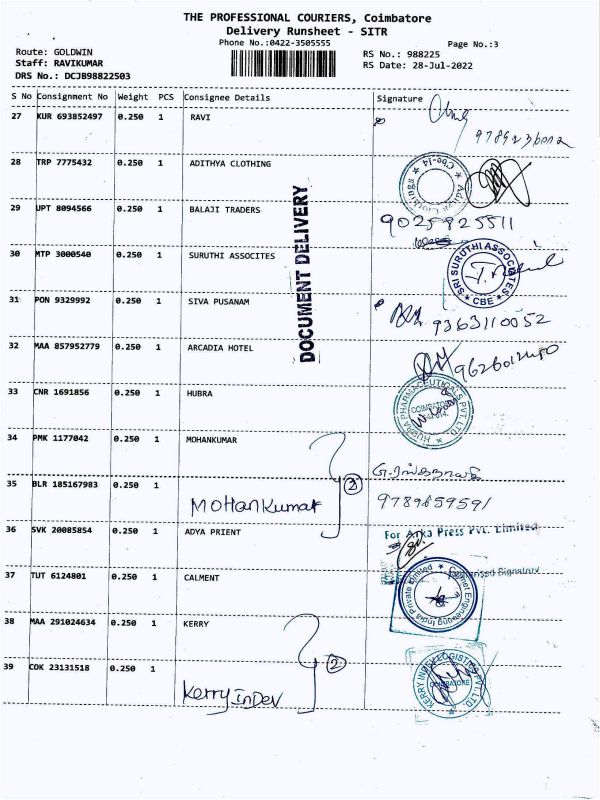 THE PROFESSIONAL COURIERS, Coimbatore
Delivery Runsheet - SITR
Phone No.:0422-3505555
Page No.:3
Route: GOLDWIN
RS No.: 988225
Staff: RAVIKUMAR
RS Date: 28-Jul-2022
DRS No.: DCJB98822503
S No Consignment No Weight PCS Consignee Details Signature
27 KUR 693852497 0.250 1 RAVI
28 TRP 7775432 0.250 1 ADITHYA CLOTHING
29 UPT 8094566 0.250 1 BALAJI TRADERS
9025825511
DOCUMENT DELIVERY
30 MTP 3000540 0.250 1 SURUTHI ASSOCITES
SRI SURUTHI ASSOCIATES
CBE
31 PON 9329992 0.250 1 SIVA PUSANAM
9363110052
32 MAA 857952779 0.250 1 ARCADIA HOTEL
33 CNR 1691856 0.250 1 HUBRA
HUBRA PHARMACEUTICALS PVT. LTD
COIMBATORE
34 PMK 1177042 0.250 1 MOHANKUMAR
35 BLR 185167983 0.250 1
Mohankumar
2
9789659591
36 SVK 20085854 0.250 1 ADYA PRIENT
For Arka Press Pvt. Limited
Authorised Signatory
37 TUT 6124801 0.250 1 CALMENT
Engineering India Private Limited
38 MAA 291024634 0.250 1 KERRY
39 COK 23131518 0.250 1
Kerry InDev
2
KERRY INDEV LOGISTICS PVT. LTD.
COIMBATORE